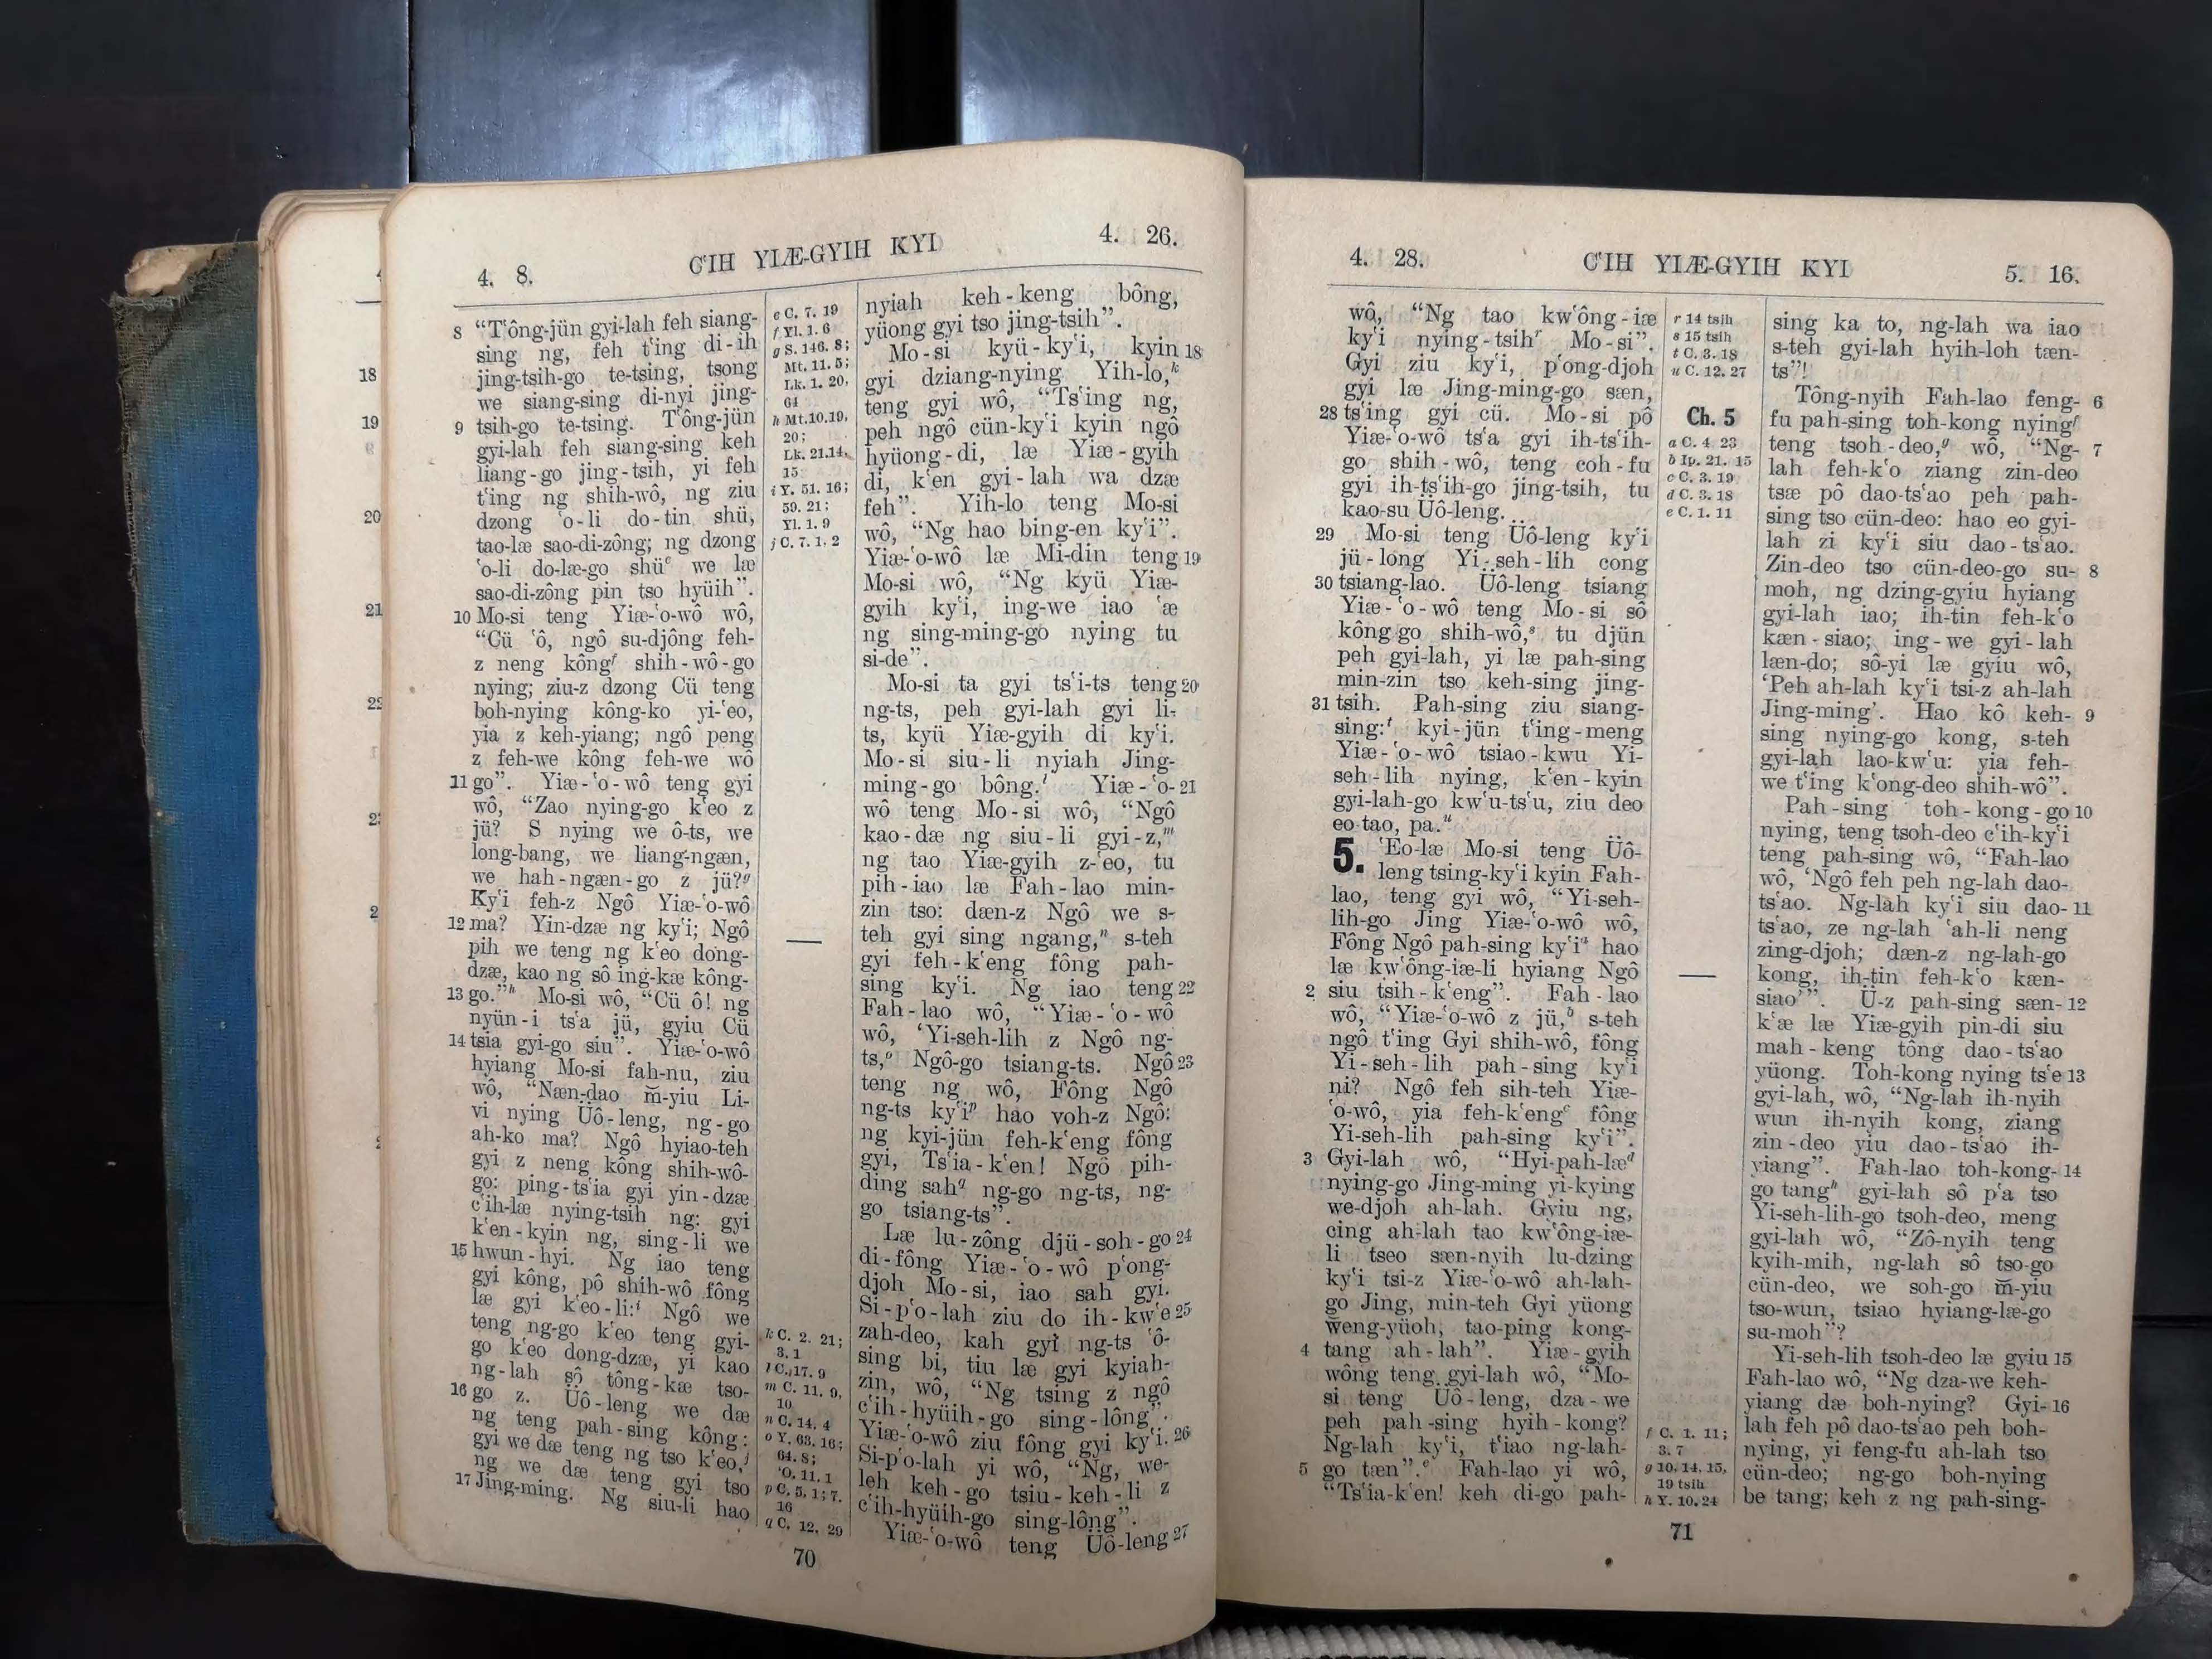 4. 8.
C‘IH YIÆ-GYIH KYI
4. 26.
8 “T‘ông-jün gyi-lah feh siang-
sing ng, feh t‘ing di-ih
jing-tsih-go te-tsing, tsong
we siang-sing di-nyi jing-
9 tsih-go te-tsing. T‘ông-jün
gyi-lah feh siang-sing keh
liang-go jing-tsih, yi feh
t‘ing ng shih-wô, ng ziu
dzong ‘o-li do-tin shü,
tao-læ sao-di-zông; ng dzong
‘o-li do-læ-go shüᵉ we læ
sao-di-zông pin tso hyüih”.
10 Mo-si teng Yiæ-‘o-wô wô,
“Cü ‘ô, ngô su-djông feh-
z neng kôngᶠ shih-wô-go
nying; ziu-z dzong Cü teng
boh-nying kông-ko yi-‘eo,
yia z keh-yiang; ngô peng
z feh-we kông feh-we wô
11 go”. Yiæ-‘o-wô teng gyi
wô, “Zao nying-go k‘eo z
jü? S nying we ô-ts, we
long-bang, we liang-ngæn,
we hah-ngæn-go z jü?ᵍ
Ky‘i feh-z Ngô Yiæ-‘o-wô
12 ma? Yin-dzæ ng ky‘i; Ngô
pih we teng ng k‘eo dong-
dzæ, kao ng sô ing-kæ kông-
13 go.”ʰ Mo-si wô, “Cü ô! ng
nyün-i ts‘a jü, gyiu Cü
14 tsia gyi-go siu”. Yiæ-‘o-wô
hyiang Mo-si fah-nu, ziu
wô, “Næn-dao m̆-yiu Li-
vi nying Üô-leng, ng-go
ah-ko ma? Ngô hyiao-teh
gyi z neng kông shih-wô-
go: ping-ts‘ia gyi yin-dzæ
c‘ih-læ nying-tsih ng: gyi
k‘en-kyin ng, sing-li we
15 hwun-hyi. Ng iao teng
gyi kông, pô shih-wô fông
læ gyi k‘eo-li:ⁱ Ngô we
teng ng-go k‘eo teng gyi-
go k‘eo dong-dzæ, yi kao
ng-lah sô tông-kæ tso-
16 go z. Üô-leng we dæ
ng teng pah-sing kông:
gyi we dæ teng ng tso k‘eo,ʲ
ng we dæ teng gyi tso
17 Jing-ming. Ng siu-li hao
e C. 7. 19
f Yl. 1. 6
g S. 146. 8;
Mt. 11. 5;
Lk. 1. 20,
64
h Mt.10.19,
20;
Lk. 21.14,
15
i Y. 51. 16;
59. 21;
Yl. 1. 9
j C. 7. 1, 2
k C. 2. 21;
3. 1
l C. 17. 9
m C. 11. 9,
10
n C. 14. 4
o Y. 63. 16;
64. 8;
‘O. 11. 1
p C. 5. 1; 7.
16
q C. 12. 29
nyiah keh-keng bông,
yüong gyi tso jing-tsih”.
Mo-si kyü-ky‘i, kyin 18
gyi dziang-nying Yih-lo,ᵏ
teng gyi wô, “Ts‘ing ng,
peh ngô cün-ky‘i kyin ngô
hyüong-di, læ Yiæ-gyih
di, k‘en gyi-lah wa dzæ
feh”. Yih-lo teng Mo-si
wô, “Ng hao bing-en ky‘i”.
Yiæ-‘o-wô læ Mi-din teng 19
Mo-si wô, “Ng kyü Yiæ-
gyih ky‘i, ing-we iao ‘æ
ng sing-ming-go nying tu
si-de”.
Mo-si ta gyi ts‘i-ts teng 20
ng-ts, peh gyi-lah gyi li-
ts, kyü Yiæ-gyih di ky‘i.
Mo-si siu-li nyiah Jing-
ming-go bông.ˡ Yiæ-‘o- 21
wô teng Mo-si wô, “Ngô
kao-dæ ng siu-li gyi-z,ᵐ
ng tao Yiæ-gyih z-‘eo, tu
pih-iao læ Fah-lao min-
zin tso: dæn-z Ngô we s-
teh gyi sing ngang,ⁿ s-teh
gyi feh-k‘eng fông pah-
sing ky‘i. Ng iao teng 22
Fah-lao wô, “Yiæ-‘o-wô
wô, ‘Yi-seh-lih z Ngô ng-
ts,ᵒ Ngô-go tsiang-ts. Ngô 23
teng ng wô, Fông Ngô
ng-ts ky‘iᵖ hao voh-z Ngô:
ng kyi-jün feh-k‘eng fông
gyi, Ts‘ia-k‘en! Ngô pih-
ding sah<sup>q</sup> ng-go ng-ts, ng-
go tsiang-ts”.
Læ lu-zông djü-soh-go 24
di-fông Yiæ-‘o-wô p‘ong-
djoh Mo-si, iao sah gyi.
Si-p‘o-lah ziu do ih-kw‘e 25
zah-deo, kah gyi ng-ts ‘ô-
sing bi, tiu læ gyi kyiah-
zin, wô, “Ng tsing z ngô
c‘ih-hyüih-go sing-lông”.
Yiæ-‘o-wô ziu fông gyi ky‘i. 26
Si-p‘o-lah yi wô, “Ng, we-
leh keh-go tsiu-keh-li z
c‘ih-hyüih-go sing-lông”.
Yiæ-‘o-wô teng Üô-leng 27
70
18
19
20
21
4. 28.
C‘IH YIÆ-GYIH KYI
5. 16.
wô, “Ng tao kw‘ông-iæ
ky‘i nying-tsihʳ Mo-si”.
Gyi ziu ky‘i, p‘ong-djoh
gyi læ Jing-ming-go sæn,
28 ts‘ing gyi cü. Mo-si pô
Yiæ-‘o-wô ts‘a gyi ih-ts‘ih-
go shih-wô, teng coh-fu
gyi ih-ts‘ih-go jing-tsih, tu
kao-su Üô-leng.
29 Mo-si teng Üô-leng ky‘i
jü-long Yi-seh-lih cong
30 tsiang-lao. Üô-leng tsiang
Yiæ-‘o-wô teng Mo-si sô
kông-go shih-wô,ˢ tu djün
peh gyi-lah, yi læ pah-sing
min-zin tso keh-sing jing-
31 tsih. Pah-sing ziu siang-
sing:ᵗ kyi-jün t‘ing-meng
Yiæ-‘o-wô tsiao-kwu Yi-
seh-lih nying, k‘en-kyin
gyi-lah-go kw‘u-ts‘u, ziu deo
eo-tao, pa.ᵘ
5. ‘Eo-læ Mo-si teng Üô-
leng tsing-ky‘i kyin Fah-
lao, teng gyi wô, “Yi-seh-
lih-go Jing Yiæ-‘o-wô wô,
Fông Ngô pah-sing ky‘iᵃ hao
læ kw‘ông-iæ-li hyiang Ngô
2 siu tsih-k‘eng”. Fah-lao
wô, “Yiæ-‘o-wô z jü,ᵇ s-teh
ngô t‘ing Gyi shih-wô, fông
Yi-seh-lih pah-sing ky‘i
ni? Ngô feh sih-teh Yiæ-
‘o-wô, yia feh-k‘engᶜ fông
Yi-seh-lih pah-sing ky‘i”.
3 Gyi-lah wô, “Hyi-pah-læᵈ
nying-go Jing-ming yi-kying
we-djoh ah-lah. Gyiu ng,
cing ah-lah tao kw‘ông-iæ-
li tseo sæn-nyih lu-dzing
ky‘i tsi-z Yiæ-‘o-wô ah-lah-
go Jing, min-teh Gyi yüong
weng-yüoh, tao-ping kong-
4 tang ah-lah”. Yiæ-gyih
wông teng gyi-lah wô, “Mo-
si teng Üô-leng, dza-we
peh pah-sing hyih-kong?
Ng-lah ky‘i, t‘iao ng-lah-
5 go tæn”.ᵉ Fah-lao yi wô,
“Ts‘ia-k‘en! keh di-go pah-
r 14 tsih
s 15 tsih
t C. 3. 18
u C. 12. 27
Ch. 5
a C. 4. 23
b Ip. 21. 15
c C. 3. 19
d C. 3. 18
e C. 1. 11
f C. 1. 11;
3. 7
g 10, 14, 15,
19 tsih
h Y. 10. 24
sing ka to, ng-lah wa iao
s-teh gyi-lah hyih-loh tæn-
ts”!
Tông-nyih Fah-lao feng- 6
fu pah-sing toh-kong nyingᶠ
teng tsoh-deo,ᵍ wô, “Ng- 7
lah feh-k‘o ziang zin-deo
tsæ pô dao-ts‘ao peh pah-
sing tso cün-deo: hao eo gyi-
lah zi ky‘i siu dao-ts‘ao.
Zin-deo tso cün-deo-go su- 8
moh, ng dzing-gyiu hyiang
gyi-lah iao; ih-tin feh-k‘o
kæn-siao; ing-we gyi-lah
læn-do; sô-yi læ gyiu wô,
‘Peh ah-lah ky‘i tsi-z ah-lah
Jing-ming’. Hao kô keh- 9
sing nying-go kong, s-teh
gyi-lah lao-kw‘u: yia feh-
we t‘ing k‘ong-deo shih-wô”.
Pah-sing toh-kong-go 10
nying, teng tsoh-deo c‘ih-ky‘i
teng pah-sing wô, “Fah-lao
wô, ‘Ngô feh peh ng-lah dao-
ts‘ao. Ng-lah ky‘i siu dao- 11
ts‘ao, ze ng-lah ‘ah-li neng
zing-djoh; dæn-z ng-lah-go
kong, ih-tin feh-k‘o kæn-
siao’”. Ü-z pah-sing sæn- 12
k‘æ læ Yiæ-gyih pin-di siu
mah-keng tông dao-ts‘ao
yüong. Toh-kong nying ts‘e 13
gyi-lah, wô, “Ng-lah ih-nyih
wun ih-nyih kong, ziang
zin-deo yiu dao-ts‘ao ih-
yiang”. Fah-lao toh-kong- 14
go tangʰ gyi-lah sô p‘a tso
Yi-seh-lih-go tsoh-deo, meng
gyi-lah wô, “Zô-nyih teng
kyih-mih, ng-lah sô tso-go
cün-deo, we soh-go m̆-yiu
tso-wun, tsiao hyiang-læ-go
su-moh”?
Yi-seh-lih tsoh-deo læ gyiu 15
Fah-lao wô, “Ng dza-we keh-
yiang dæ boh-nying? Gyi- 16
lah feh pô dao-ts‘ao peh boh-
nying, yi feng-fu ah-lah tso
cün-deo; ng-go boh-nying
be tang; keh z ng pah-sing-
71